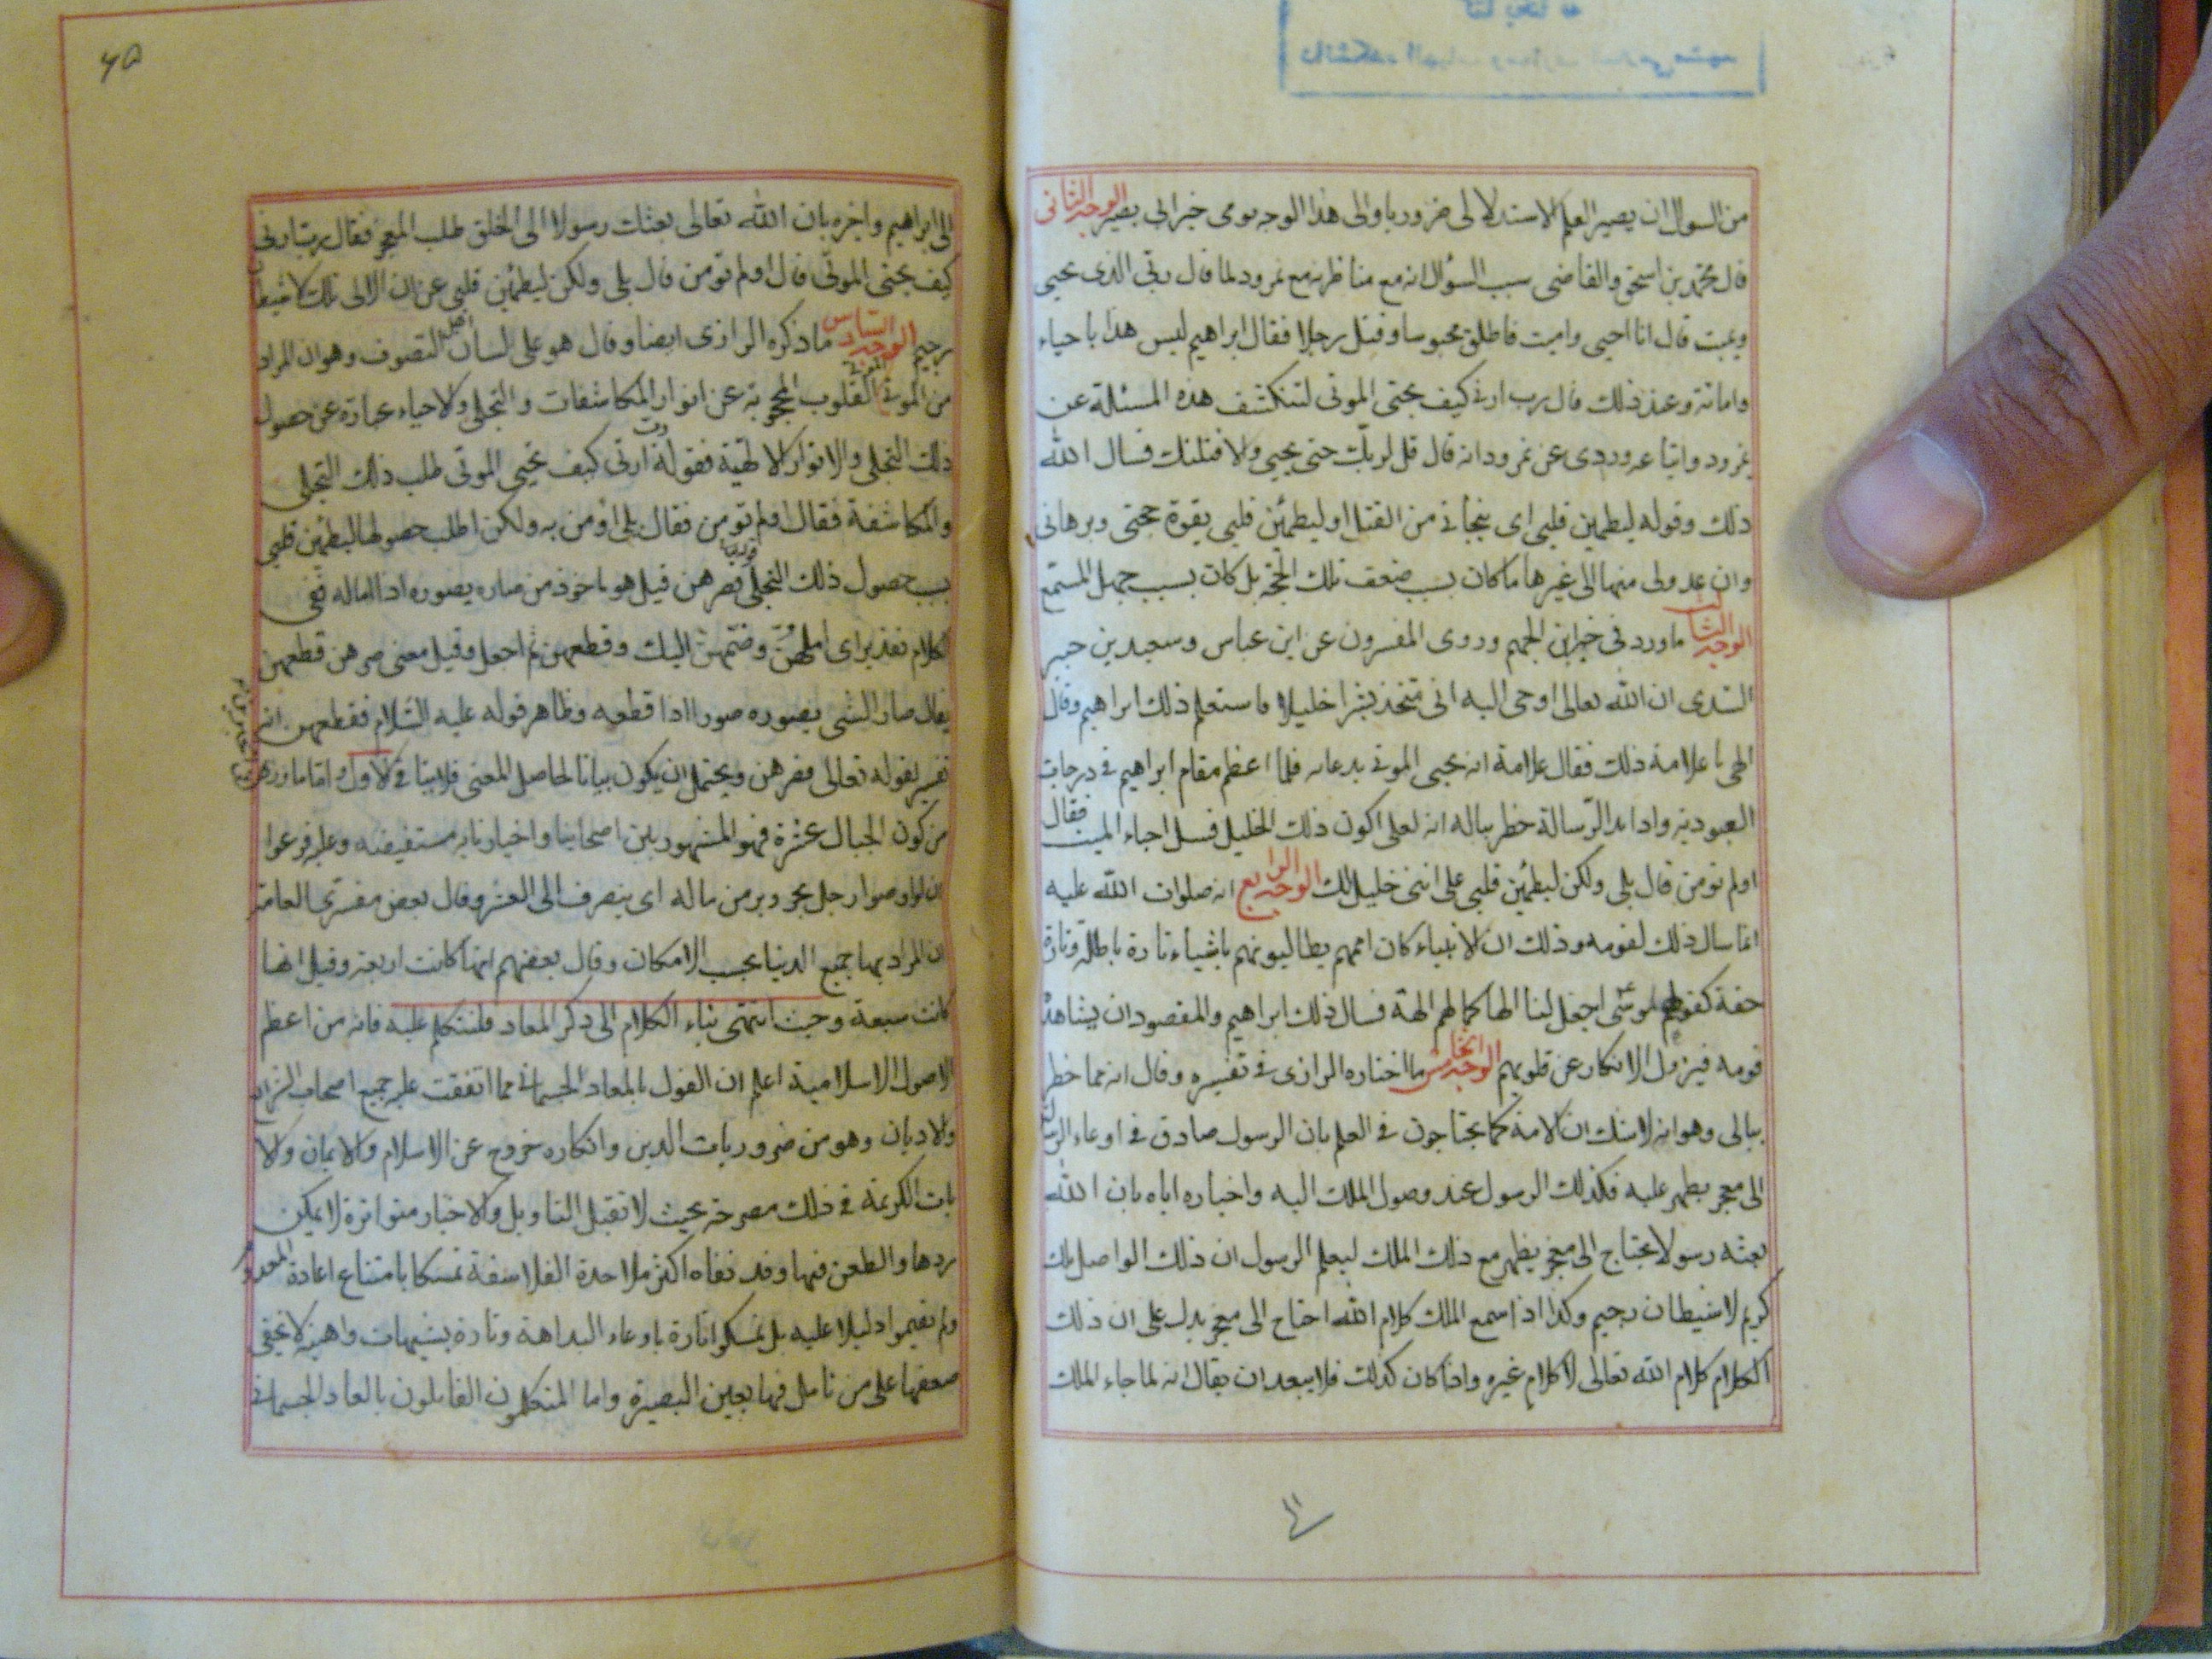 من السوال ان يصير العلم الاستدلالى ضروريا والى هذا الوجه يومى خبر ابى بصير الوجه الثانى
قال محمد بن اسحق والقاضى سبب السؤال انه مع مناظرته مع نمرود لما قال ربى الذى يحيى
ويميت قال انا احيى واميت فاطلق محبوسا وقتل رجلا فقال ابراهيم ليس هذا باحياء
واماتة وعند ذلك قال رب ارنى كيف يحيى الموتى لتنكشف هذه المسئلة عن
نمرود واتباعه وردى عن نمرود انه قال قل لربك حتى يحيى والا قتلتك فسال الله
ذلك وقوله ليطمئن قلبى اى بنجاتى من القتل او ليطمئن قلبى بقوة حجتى وبرهانى
وان عدولى منها الى غيرها ما كان بسبب ضعف تلك الحجة بل كان بسبب جهل المستمع
الوجه الثالث ما ورد فى خبر ابن الجهم وروى المفسرون عن ابن عباس وسعيد بن جبير
السدى ان الله تعالى اوحى اليه انى متخذ بشرا خليلا فاستعلم ذلك ابراهيم وقال
الهى ما علامة ذلك فقال علامة انه يحيى الموتى بدعائه فلما اعظم مقام ابراهيم فى درجات
العبودية واداء الرسالة خطر بباله انه لعلى اكون ذلك الخليل فسل احياء الميت فقال
اولم تومن قال بلى ولكن ليطمئن قلبى على اننى خليل لك الوجه الرابع انه صلوات الله عليه
انما سال ذلك لقومه وذلك ان الانبياء كان اممهم يطالبونهم باشياء تارة باطلة وتارة
حقة كقولهم لموسى اجعل لنا الها كما لهم الهة فسال ذلك ابراهيم والمقصود ان يشاهد
قومه فيزول الانكار عن قلوبهم الوجه الخامس ما اختاره الرازى فى تفسيره وقال انه مما خطر
ببالى وهو انه لا شك ان الامة كما يحتاجون فى العلم بان الرسول صادق فى ادعاء الرسالة
الى معجز يظهر عليه فكذلك الرسول عند وصول الملك اليه واخباره اياه بان الله
بعثه رسولا يحتاج الى معجز يظهر مع ذلك الملك ليعلم الرسول ان ذلك الواصل ملك
كريم لا شيطان رجيم وكذا اذا سمع الملك كلام الله احتاج الى معجز يدل على ان ذلك
الكلام كلام الله تعالى لا كلام غيره واذا كان كذلك فلا يبعد ان يقال انه لما جاء الملك
٦٥
الى ابراهيم واخبره بان الله تعالى بعثك رسولا الى الخلق طلب المعجز فقال رب ارنى
كيف يحيى الموتى قال اولم تومن قال بلى ولكن ليطمئن قلبى عن ان الاتى ملك لا شيطان
رجيم الوجه السادس ما ذكره الرازى ايضا وقال هو على لسان اهل التصوف وهو ان المراد
من الموتى القلوب المحجوبة عن انوار المكاشفات والتجلى والاحياء عبارة عن حصول
ذلك التجلى والانوار الالهية فقوله رب ارنى كيف تحيى الموتى طلب ذلك التجلى
والمكاشفة فقال اولم تومن فقال بلى اؤمن به ولكن اطلب حصولها ليطمئن قلبى
بسبب حصول ذلك التجلى قوله فصرهن قيل هو ماخوذ من صاره يصوره اذا اماله ففى
الكلام تقدير اى املهن وضمهن اليك وقطعهن ثم اجعل وقيل معنى صرهن قطعهن
يقال صار الشى يصوره صورا اذا قطعه وظاهر قوله عليه السلام فقطعهن انه
تفسير لقوله تعالى فصرهن ويحتمل ان يكون بيانا لحاصل المعنى فلا ينافى الاول واما ما ورد
من كون الجبال عشرة فهو المشهور بين اصحابنا واخبارنا به مستفيضة وعليه فرعوا
ان لو اوصى رجل بجزء من ماله اى ينصرف الى العشر وقال بعض مفسرى العامة
ان المراد بها جميع الدنيا بحسب الامكان وقال بعضهم انها كانت اربعة وقيل انها
كانت سبعة وحيث انتهى بناء الكلام الى ذكر المعاد فلنتكلم عليه فانه من اعظم
الاصول الاسلامية اعلم ان القول بالمعاد الجسمانى مما اتفقت عليه جميع اصحاب الشرايع
والاديان وهو من ضروريات الدين وانكاره خروج عن الاسلام والايمان والا
يات الكريمة فى ذلك مصرحة بحيث لا تقبل التاويل والاخبار متواترة لا يمكن
ردها والطعن فيها وقد نفاه اكثر ملاحدة الفلاسفة تمسكا بامتناع اعادة المعدوم
ولم يقيموا دليلا عليه بل تمسكوا تارة بادعاء البداهة وتارة بشبهات واهية لا يخفى
ضعفها على من تامل فيها بعين البصيرة واما المتكلمون القائلون بالمعاد الجسمانى